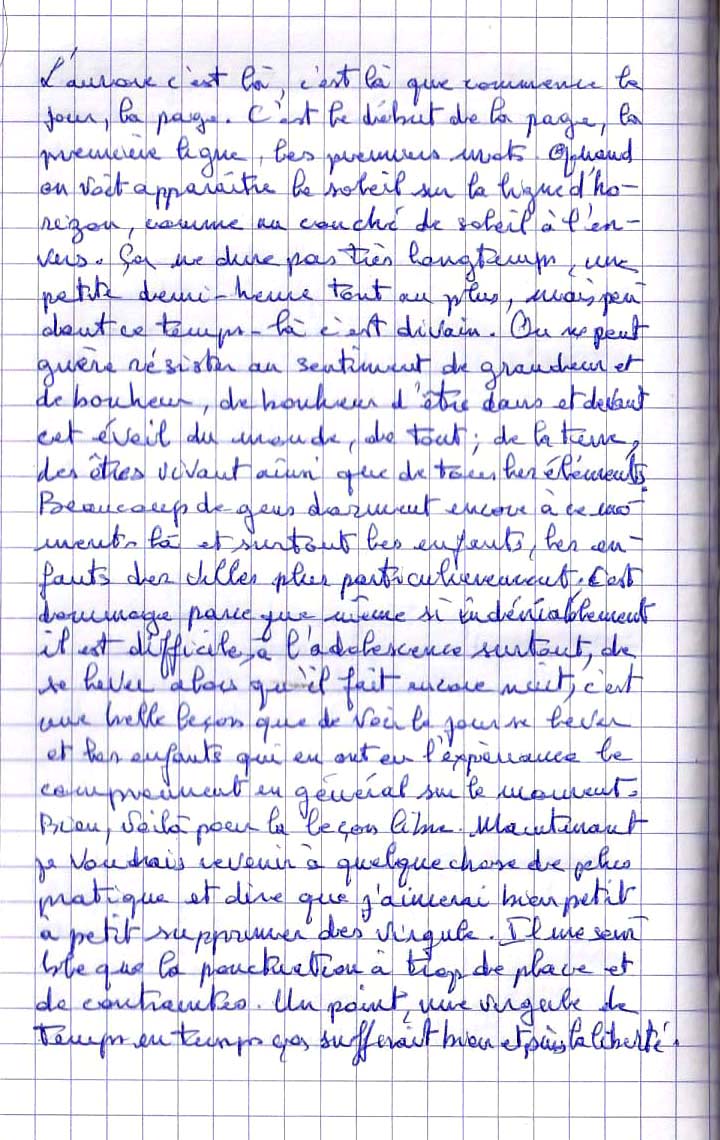 L'aurore c'est là, c'est là que commence le
jour, la page. C'est le début de la page, la
première ligne, les premiers mots. Quand
on voit apparaître le soleil sur la ligne d'ho-
rizon, comme un couché de soleil à l'en-
vers. Ça ne dure pas très longtemps, une
petite demi-heure tout au plus, mais pen
dant ce temps-là c'est divain. On ne peut
guère résister au sentiment de grandeur et
de bonheur, de bonheur d'être dans et devant
cet éveil du monde, de tout; de la terre,
des êtres vivant ainsi que de tous les éléments.
Beaucoup de gens dorment encore à ce mo-
ment-là et surtout les enfants, les en-
fants des villes plus particulièrement. C'est
dommage parce que même si indéniablement
il est difficile, à l'adolescence surtout, de
se lever alors qu'il fait encore nuit, c'est
une belle leçon que de voir le jour se lever
et les enfants qui en ont eu l'expériance le
comprennent en général sur le moment.
Bien, voilà pour la leçon libre. Maintenant
je voudrais revenir à quelque chose de plus
pratique et dire que j'aimerai bien petit
à petit supprimer des virgule. Il me sem
ble que la ponctuation à trop de place et
de contraintes. Un point, une virgule de
temps en temps ça sufferait bien et puis la liberté.